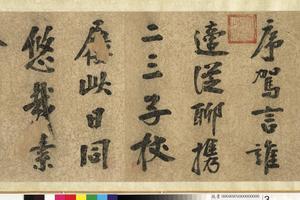 序駕言誰
遠從聊攜
二三子校
蹇此日同
悠哉素